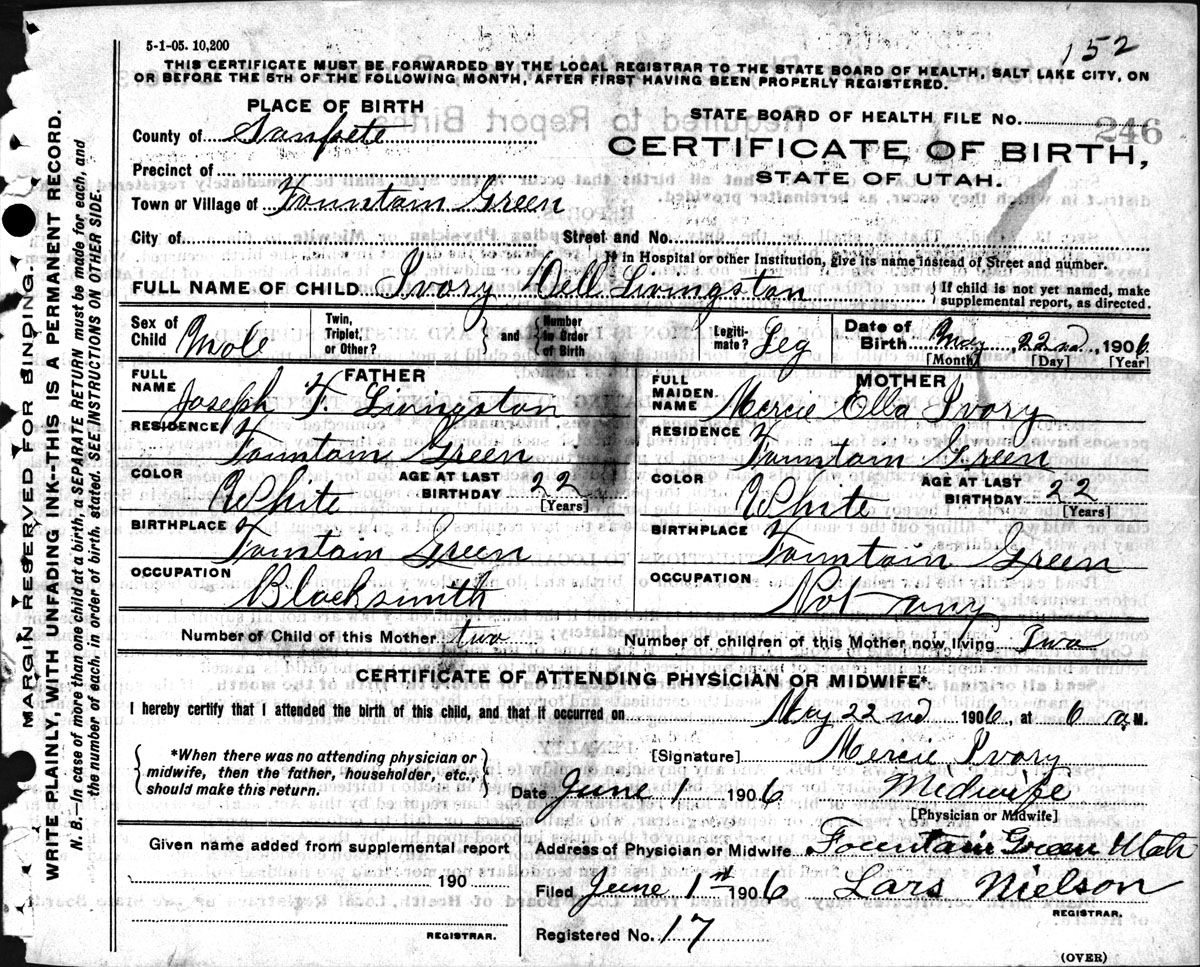 5-1-05. 10,200
152
THIS CERTIFICATE MUST BE FORWARDED BY THE LOCAL REGISTRAR TO THE STATE BOARD OF HEALTH, SALT LAKE CITY, ON
OR BEFORE THE 5TH OF THE FOLLOWING MONTH, AFTER FIRST HAVING BEEN PROPERLY REGISTERED.
PLACE OF BIRTH
STATE BOARD OF HEALTH FILE No.
246
County of Sanpete
CERTIFICATE OF BIRTH,
Precinct of
STATE OF UTAH.
Town or Village of Fountain Green
City of Street and No.
If in Hospital or other Institution, give its name instead of Street and number.
FULL NAME OF CHILD Ivory Dell Livingston
{ If child is not yet named, make
supplemental report, as directed.
Sex of Child Male
Twin, Triplet, or Other? } and { Number in Order of Birth
Legiti-mate? Leg
Date of Birth May 22nd, 1906
[Month] [Day] [Year]
FATHER
FULL NAME Joseph F. Livingston
RESIDENCE Fountain Green
COLOR White
AGE AT LAST BIRTHDAY 22
[Years]
BIRTHPLACE Fountain Green
OCCUPATION Blacksmith
MOTHER
FULL MAIDEN NAME Mercie Ella Ivory
RESIDENCE Fountain Green
COLOR White
AGE AT LAST BIRTHDAY 22
[Years]
BIRTHPLACE Fountain Green
OCCUPATION Not any
Number of Child of this Mother two Number of children of this Mother now living Two
CERTIFICATE OF ATTENDING PHYSICIAN OR MIDWIFE*
I hereby certify that I attended the birth of this child, and that it occurred on May 22nd 1906, at 6 a M.
{ *When there was no attending physician or
midwife, then the father, householder, etc.,
should make this return. }
[Signature] Mercie Ivory
Date June 1 1906 Midwife
[Physician or Midwife]
Given name added from supplemental report
190
REGISTRAR.
Address of Physician or Midwife Fountain Green Utah
Filed June 1st 1906 Lars Nielson
REGISTRAR.
Registered No. 17
(OVER)
MARGIN RESERVED FOR BINDING.
WRITE PLAINLY, WITH UNFADING INK--THIS IS A PERMANENT RECORD.
N. B.—In case of more than one child at a birth, a SEPARATE RETURN must be made for each, and
the number of each, in order of birth, stated. SEE INSTRUCTIONS ON OTHER SIDE